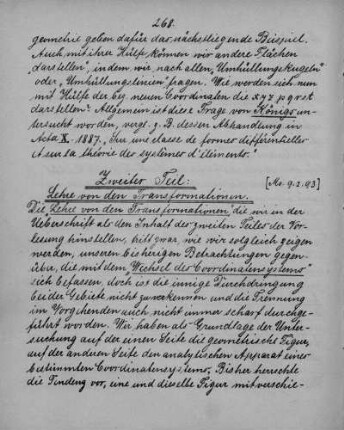 268.
geometrie geben dafür das nächstliegende Beispiel.
Auch mit ihrer Hülfe können wir andere Flächen
"darstellen", indem wir nach allen "Umhüllungskugeln"
oder "Umhüllungslinien" fragen. Wir werden sich nun
mit Hilfe der neuen Coordinaten die x y z p q r s t
darstellen? Allgemein ist diese Frage von Königs un-
tersucht worden, vergl. z. B. dessen Abhandlung in
Acta X. 1887. "Sur une classe de formes différentielles
et sur la théorie des systèmes d'éléments."
Zweiter Teil: [Mo. 9.1.93]
Lehre von den Transformationen.
Die Lehre von den Transformationen, die wir in der
Ueberschrift als den Inhalt des zweiten Teiles der Vor-
lesung hinstellen, tritt zwar, wie wir sogleich zeigen
werden, unseren bisherigen Betrachtungen gegen-
über, die mit dem "Wechsel der Coordinatensysteme"
sich befassen, doch ist die innige Durchdringung
beider Gebiete nicht zu verkennen und die Trennung
im Vorgehenden auch nicht immer scharf durchge-
führt worden. Wir haben als Grundlage der Unter-
suchung auf der einen Seite die geometrische Figur,
auf der anderen Seite den analytischen Apparat eines
bestimmten Coordinatensystems. Bisher herrschte
die Tendenz vor, eine und dieselbe Figur mit verschie-